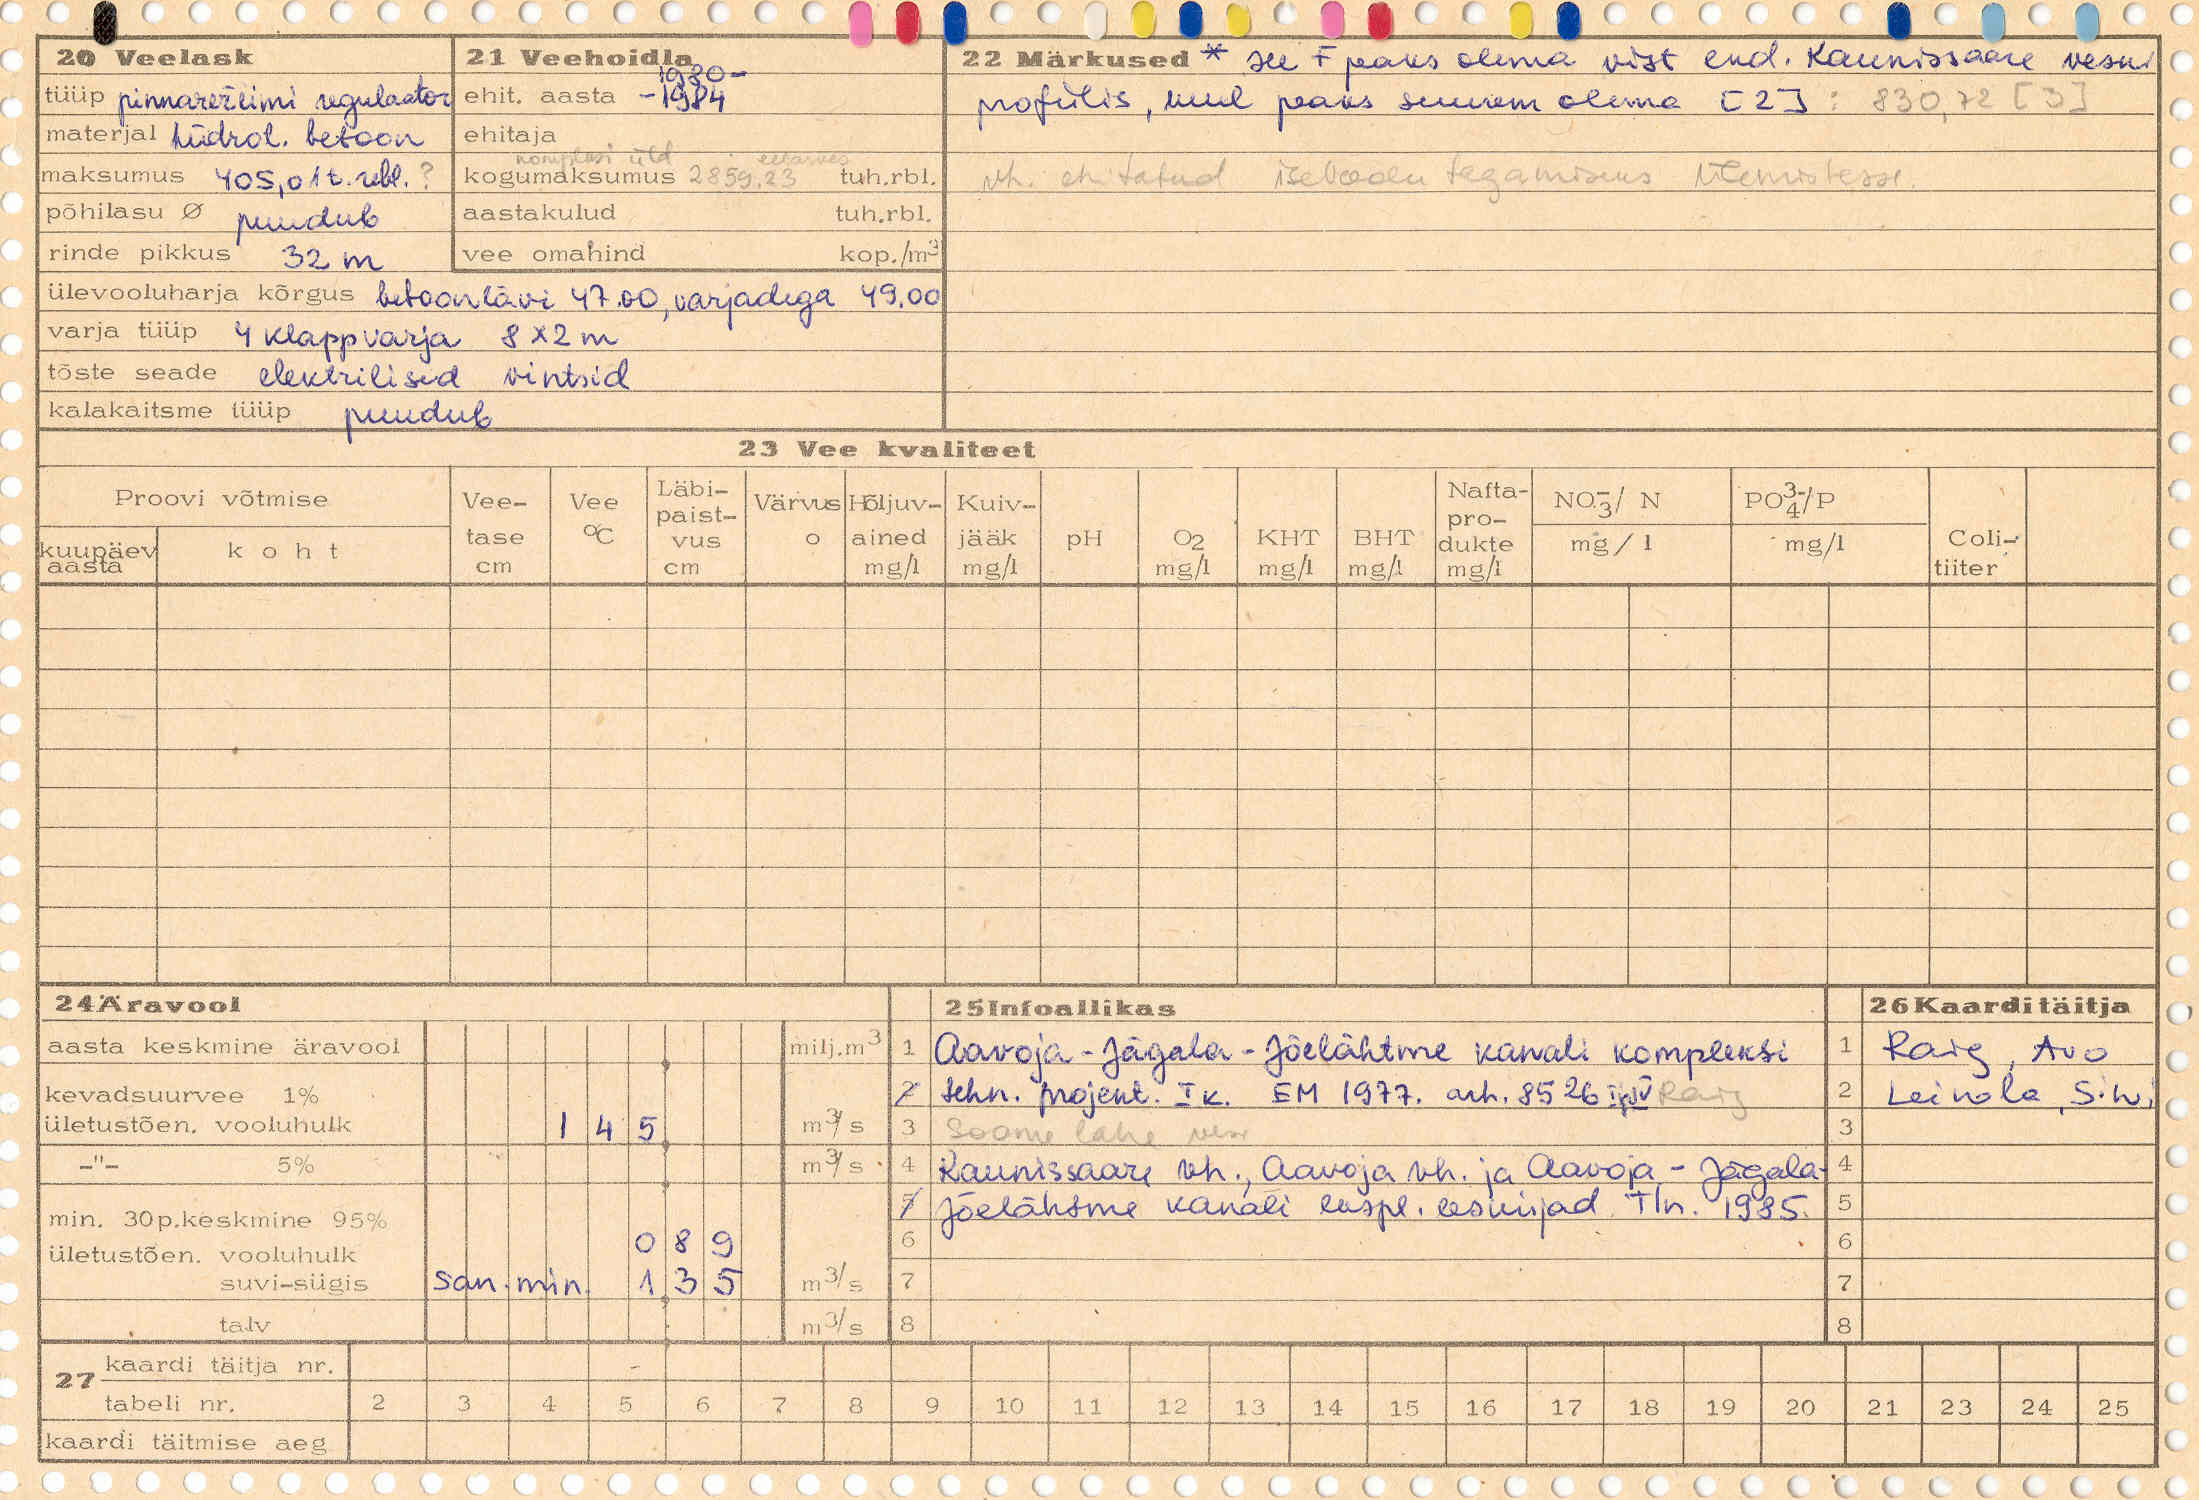 20 Veelask
tüüp pinnarežiimi regulaator
materjal hüdrot. betoon
maksumus 405,01 t. rbl. ?
põhilasu Ø puudub
rinde pikkus 32 m
ülevooluharja kõrgus betoonlävi 47.00, varjadega 49.00
varja tüüp 4 klappvarja 8 x 2 m
tõste seade elektrilised vintsid
kalakaitsme tüüp puudub
21 Veehoidla
ehit. aasta 1980-
-1984
ehitaja
kompleksi üld eelarves
kogumaksumus 2859.23 tuh.rbl.
aastakulud tuh.rbl.
vee omahind kop./m³
22 Märkused * see F peaks olema vist end. Kaunissaare veski
profiilis, kuul peaks suurem olema [2] : 830,72 [3]
vh. ehitatud isevoolu tagamiseks Ülemistesse.
23 Vee kvaliteet
Proovi võtmise
kuupäev aasta
koht
Vee-tase cm
Vee °C
Läbi-paist-vus cm
Värvus o
Hõljuv-ained mg/l
Kuiv-jääk mg/l
pH
O2 mg/l
KHT mg/l
BHT mg/l
Nafta-pro-dukte mg/l
NO3-/ N mg/l
PO4 3-/P mg/l
Coli-tiiter
24 Äravool
aasta keskmine äravool milj.m³
kevadsuurvee 1%
ületustõen. vooluhulk 1 4 5 m³/s
-"- 5% m³/s
min. 30p.keskmine 95%
ületustõen. vooluhulk 0 8 9
suvi-sügis san. min. 1 3 5 m³/s
talv m³/s
25 Infoallikas
1 Aavoja - Jägala - Jõelähtme kanali kompleksi
2 tehn. projekt. I k. EM 1977. arh. 8526 Raig
3 Soome lahe vesi
4 Kaunissaare vh., Aavoja vh. ja Aavoja - Jägala-
5 Jõelähtme kanali ekspl. eeskirjad. Tln. 1985.
6
7
8
26 Kaarditäitja
1 Raig, Avo
2 Leinola, Sirvi
3
4
5
6
7
8
27 kaardi täitja nr.
tabeli nr. 2 3 4 5 6 7 8 9 10 11 12 13 14 15 16 17 18 19 20 21 23 24 25
kaardi täitmise aeg